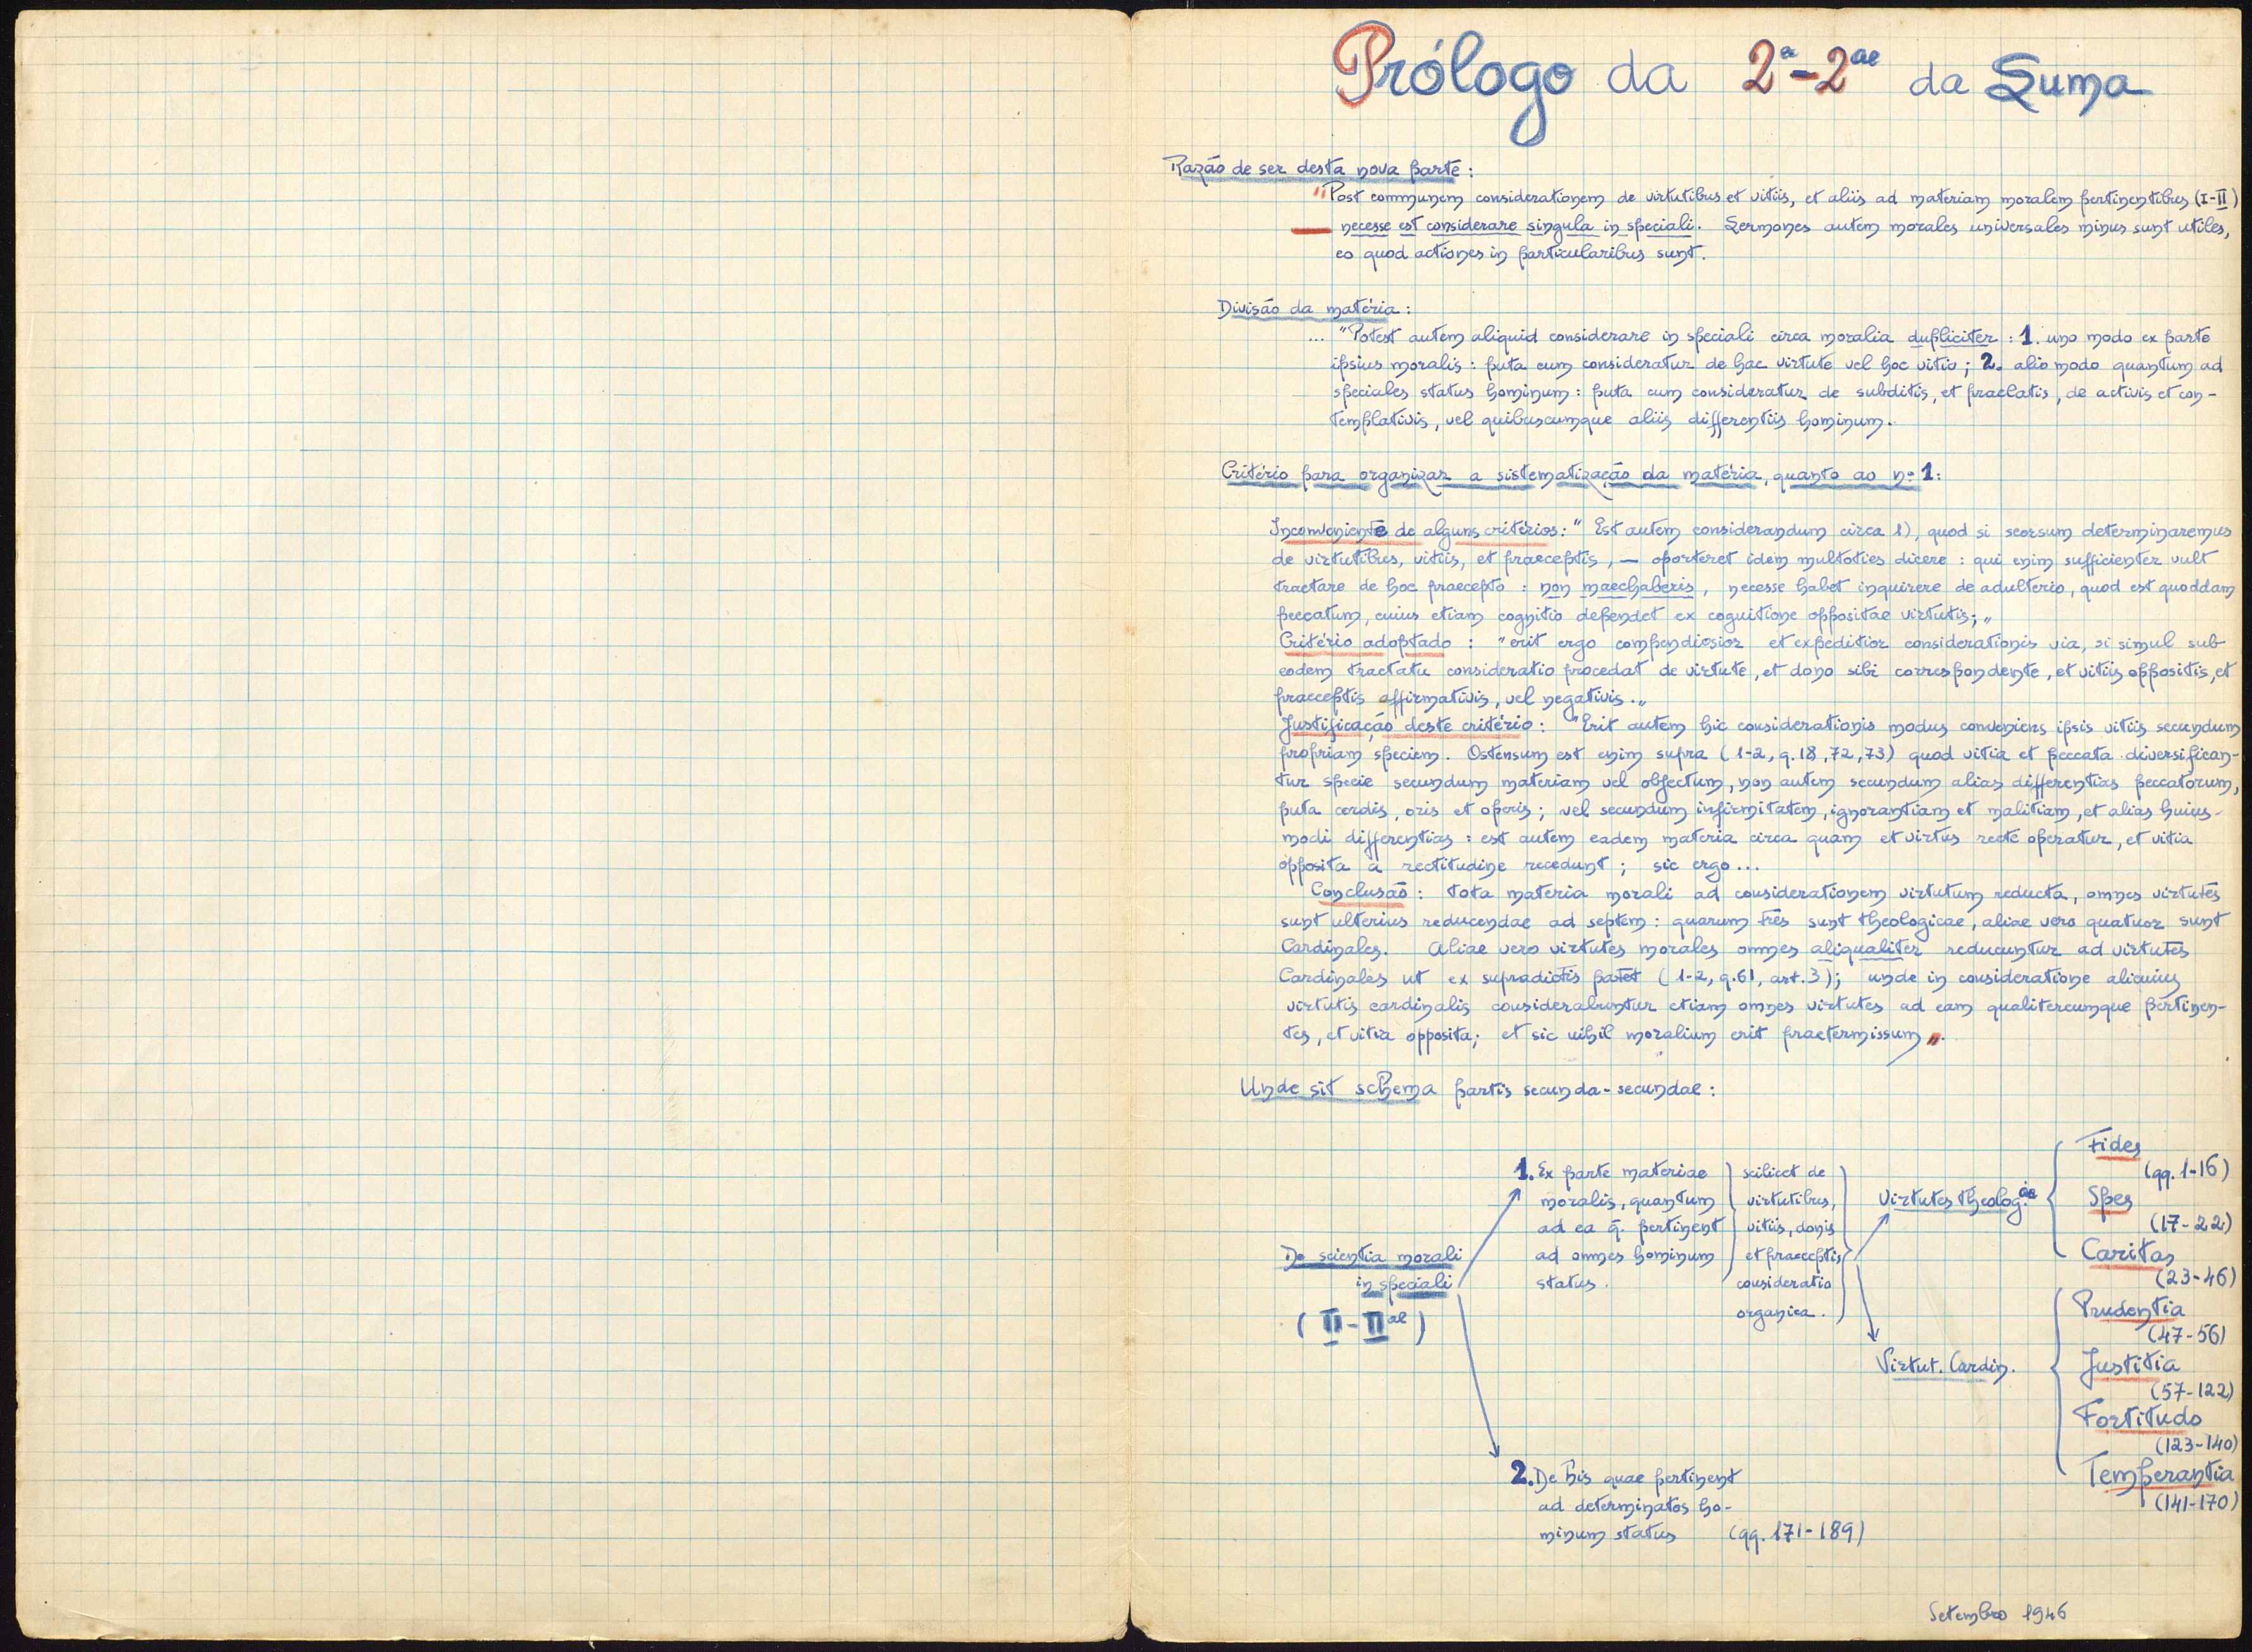 Prólogo da 2ª-2ae da Suma
Razão de ser desta nova parte:
"Post communem considerationem de virtutibus et vitiis, et aliis ad materiam moralem pertinentibus (I-II)
necesse est considerare singula in speciali. Sermones autem morales universales minus sunt utiles,
eo quod actiones in particularibus sunt.
Divisão da matéria:
... "Potest autem aliquid considerare in speciali circa moralia dupliciter: 1. uno modo ex parte
ipsius moralis: puta cum consideratur de hac virtute vel hoc vitio; 2. alio modo quantum ad
speciales status hominum: puta cum consideratur de subditis, et praelatis, de activis et con-
templativis, vel quibuscumque aliis differentiis hominum.
Critério para organizar a sistematização da matéria, quanto ao nº 1:
Inconveniente de alguns critérios: "Est autem considerandum circa 1), quod si seorsum determinaremus
de virtutibus, vitiis, et praeceptis, — oporteret idem multoties dicere: qui enim sufficienter vult
tractare de hoc praecepto: non maechaberis, necesse habet inquirere de adulterio, quod est quoddam
peccatum, cuius etiam cognitio dependet ex cognitione oppositae virtutis;"
Critério adoptado: "erit ergo compendiosior et expeditior considerationis via, si simul sub
eodem tractatu consideratio procedat de virtute, et dono sibi correspondente, et vitiis oppositis, et
praeceptis affirmativis, vel negativis."
Justificação deste critério: "Erit autem hic considerationis modus conveniens ipsis vitiis secundum
propriam speciem. Ostensum est enim supra (1-2, q. 18, 72, 73) quod vitia et peccata diversifican-
tur specie secundum materiam vel objectum, non autem secundum alias differentias peccatorum,
puta cordis, oris et operis; vel secundum infirmitatem, ignorantiam et malitiam, et alias huius-
modi differentias: est autem eadem materia circa quam et virtus recte operatur, et vitia
opposita a rectitudine recedunt; sic ergo...
Conclusão: tota materia morali ad considerationem virtutum reducta, omnes virtutes
sunt ulterius reducendae ad septem: quarum três sunt theologicae, aliae vero quatuor sunt
Cardinales. Aliae vero virtutes morales omnes aliqualiter reducuntur ad virtutes
Cardinales ut ex supradictis patet (1-2, q. 61, art. 3); unde in consideratione alicuius
virtutis cardinalis considerabuntur etiam omnes virtutes ad eam qualitercumque pertinen-
tes, et vitia opposita; et sic nihil moralium erit praetermissum".
Unde sit schema partis secunda-secundae:
De scientia morali
in speciali
(II-IIae)
1. Ex parte materiae
moralis, quantum
ad ea q. pertinent
ad omnes hominum
status.
scilicet de
virtutibus,
vitiis, donis
et praeceptis
consideratio
organica.
Virtutes theolog.ae
Fides
(qq. 1-16)
Spes
(17-22)
Caritas
(23-46)
Virtut. Cardin.
Prudentia
(47-56)
Justitia
(57-122)
Fortitudo
(123-140)
Temperantia
(141-170)
2. De his quae pertinent
ad determinatos ho-
minum status (qq. 171-189)
Setembro 1946